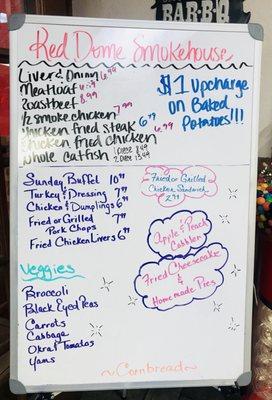 BAR-B-Q
Red Dome Smokehouse
Liver & Onions 6.99
Meatloaf
Roast beef 8.99
1/2 smoke chicken 7.99
Chicken fried steak 6.79
Chicken fried chicken 6.99
Whole catfish 1 Piece 8.49
2 Piece 13.49
$1 Upcharge
on Baked
Potatoes!!!
Sunday Buffet 10.99
Turkey & Dressing 7.99
Chicken & Dumplings 6.99
Fried or Grilled 7.99
Pork Chops
Fried Chicken Livers 6.99
Fried or Grilled
Chicken Sandwich
Apple & Peach
Cobbler
Fried Cheesecake
&
Homemade Pies
Veggies
Broccoli
Black Eyed Peas
Carrots
Cabbage
Okra & Tomatos
Yams
~Cornbread~